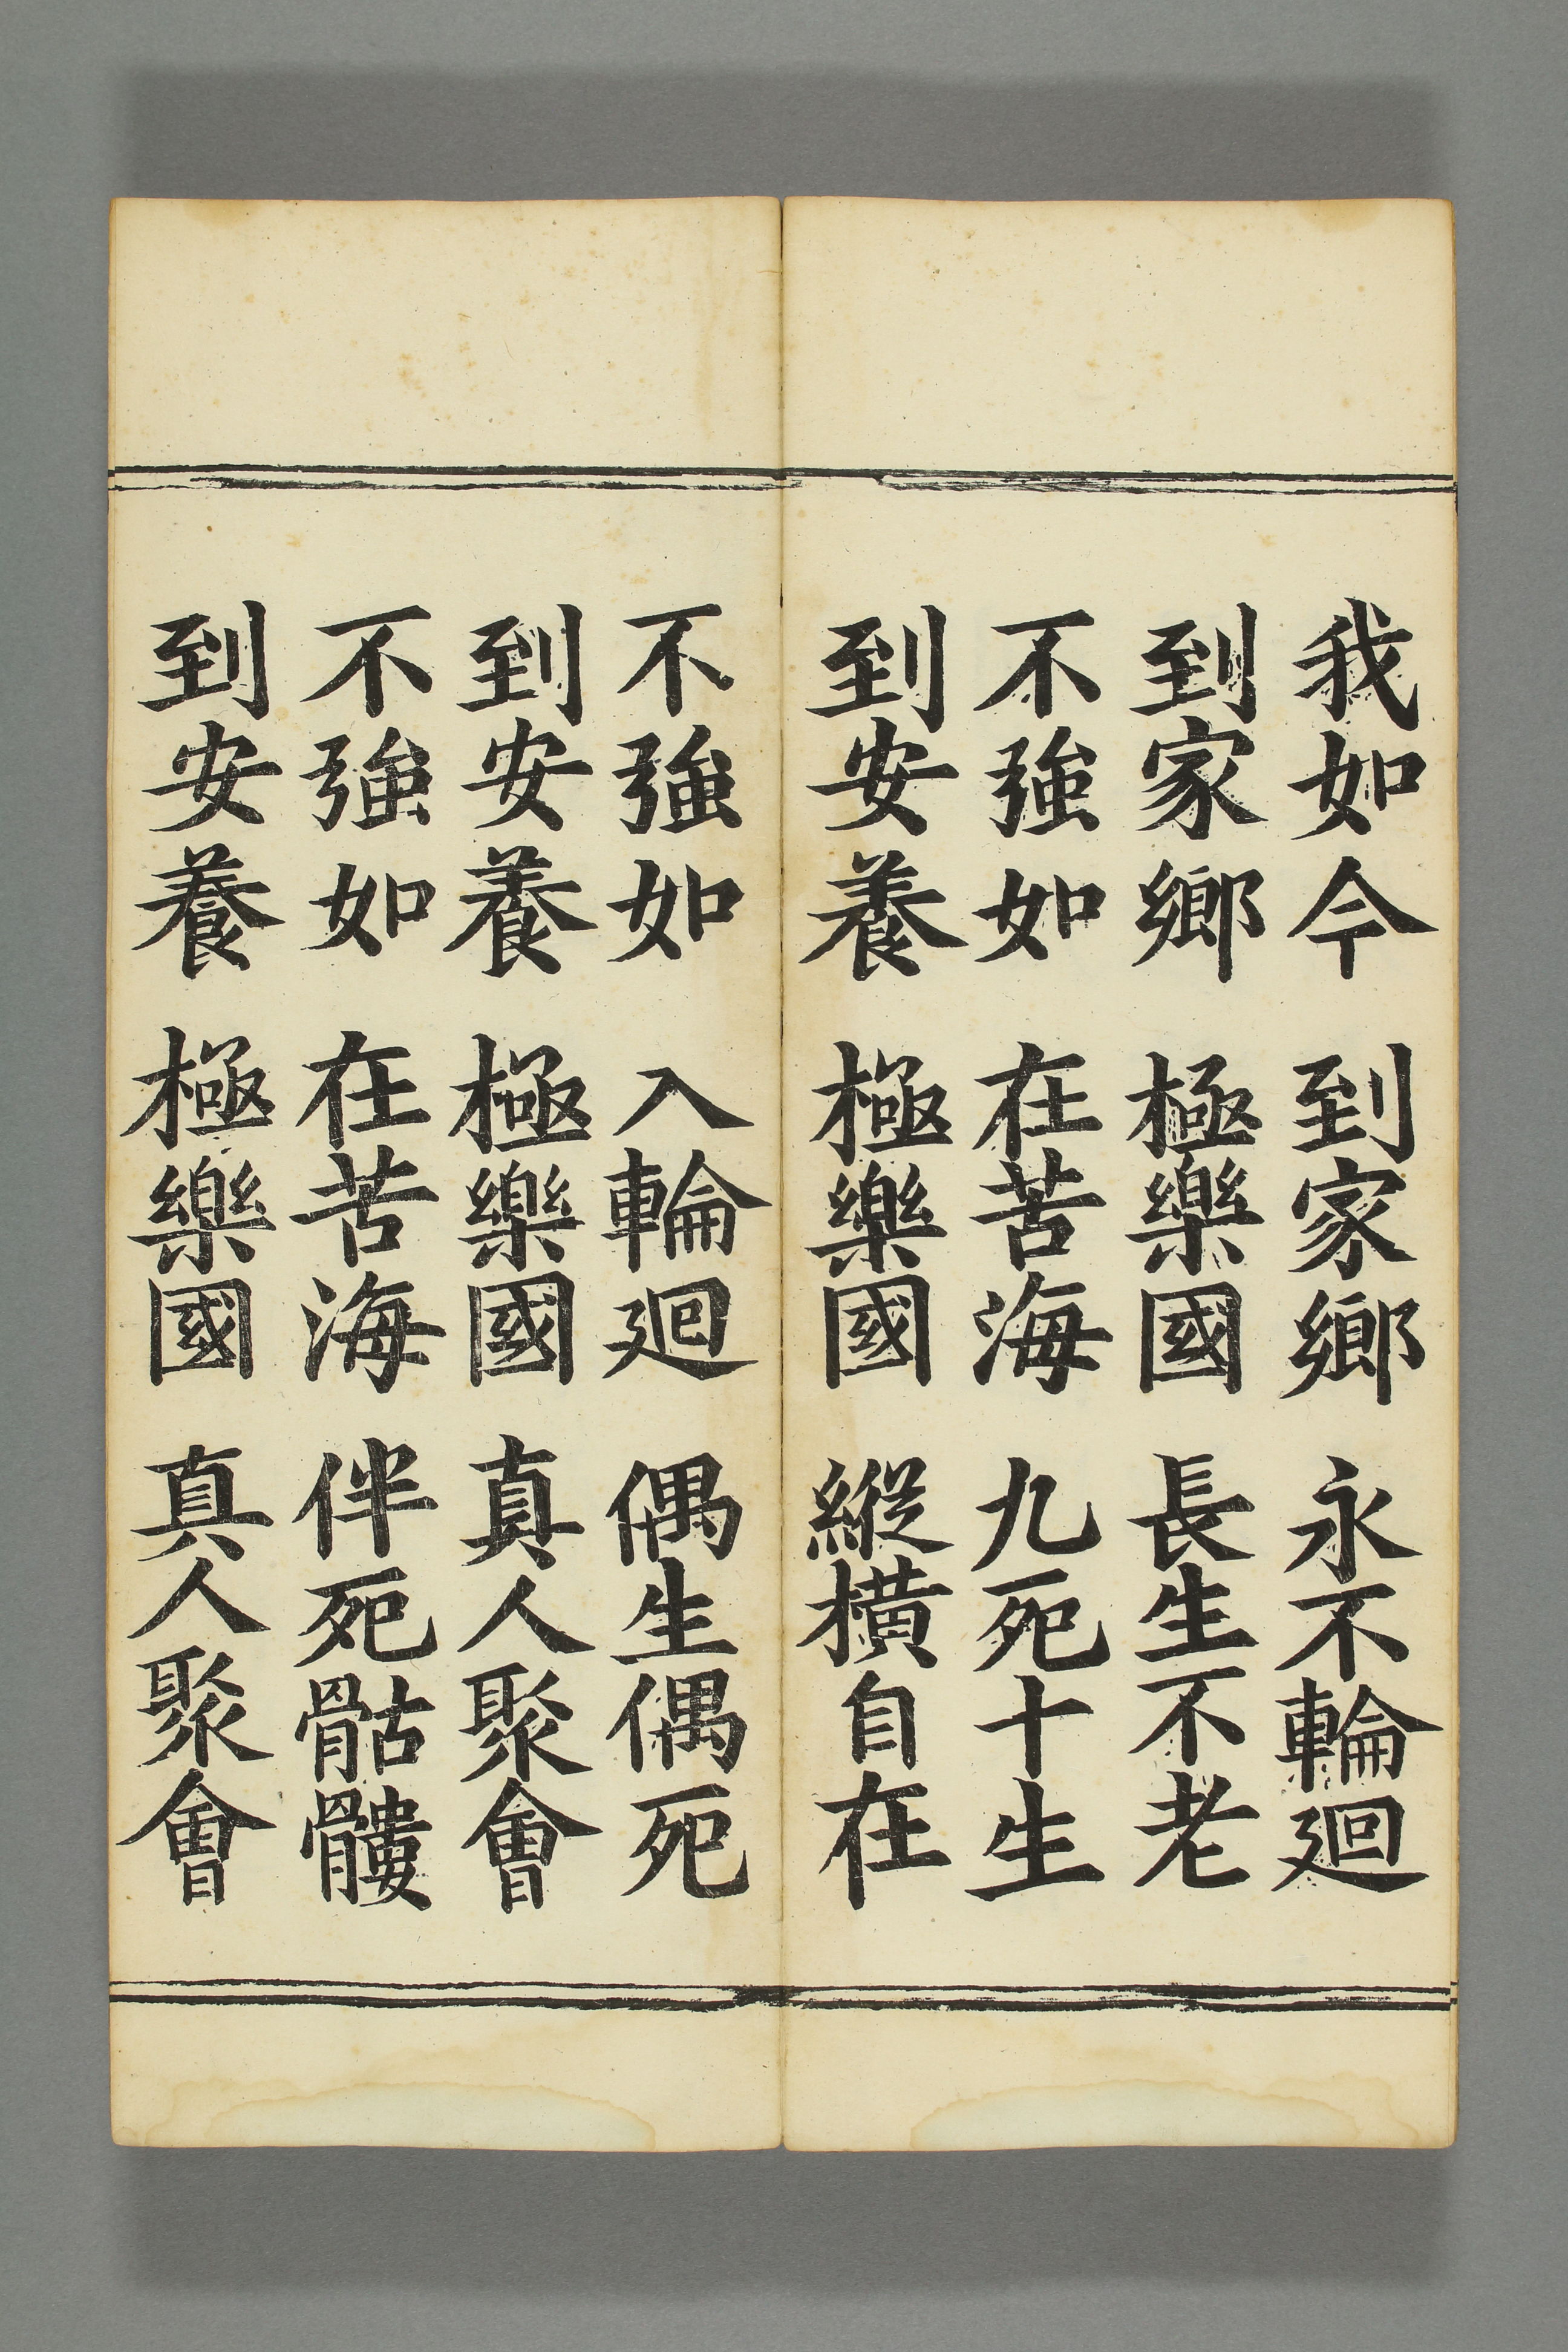 我如今 到家鄉 永不輪廻
到家鄉 極樂國 長生不老
不強如 在苦海 九死十生
到安養 極樂國 縱橫自在
不強如 入輪廻 偶生偶死
到安養 極樂國 真人聚會
不強如 在苦海 伴死骷髏
到安養 極樂國 真人聚會